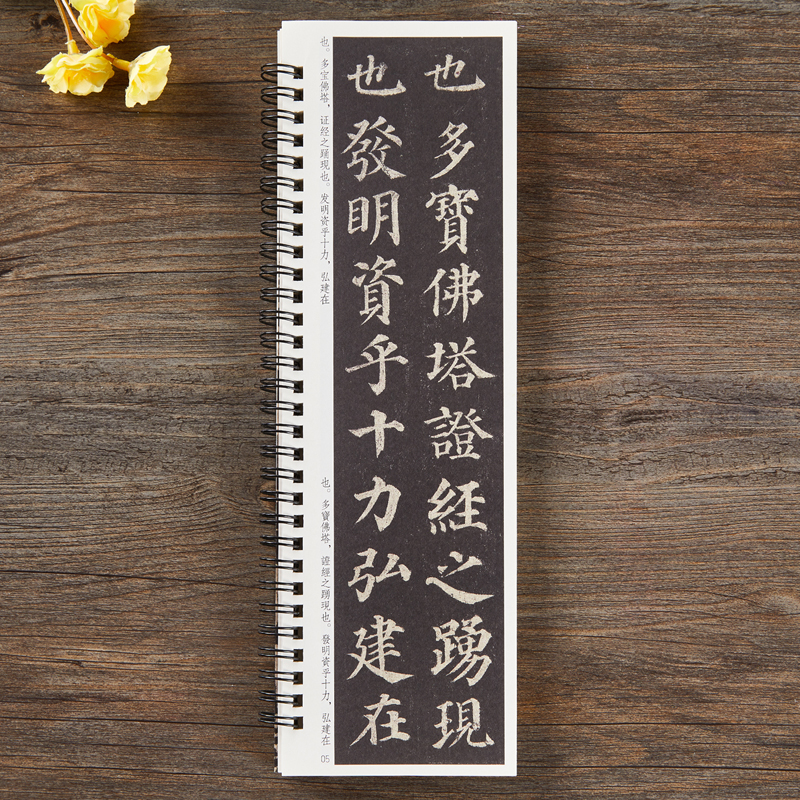 也多寶佛塔證經之踴現
也發明資乎十力弘建在
也。多宝佛塔，证经之踊现也。发明资乎十力，弘建在
也。多寶佛塔，證經之踴現也。發明資乎十力，弘建在
05